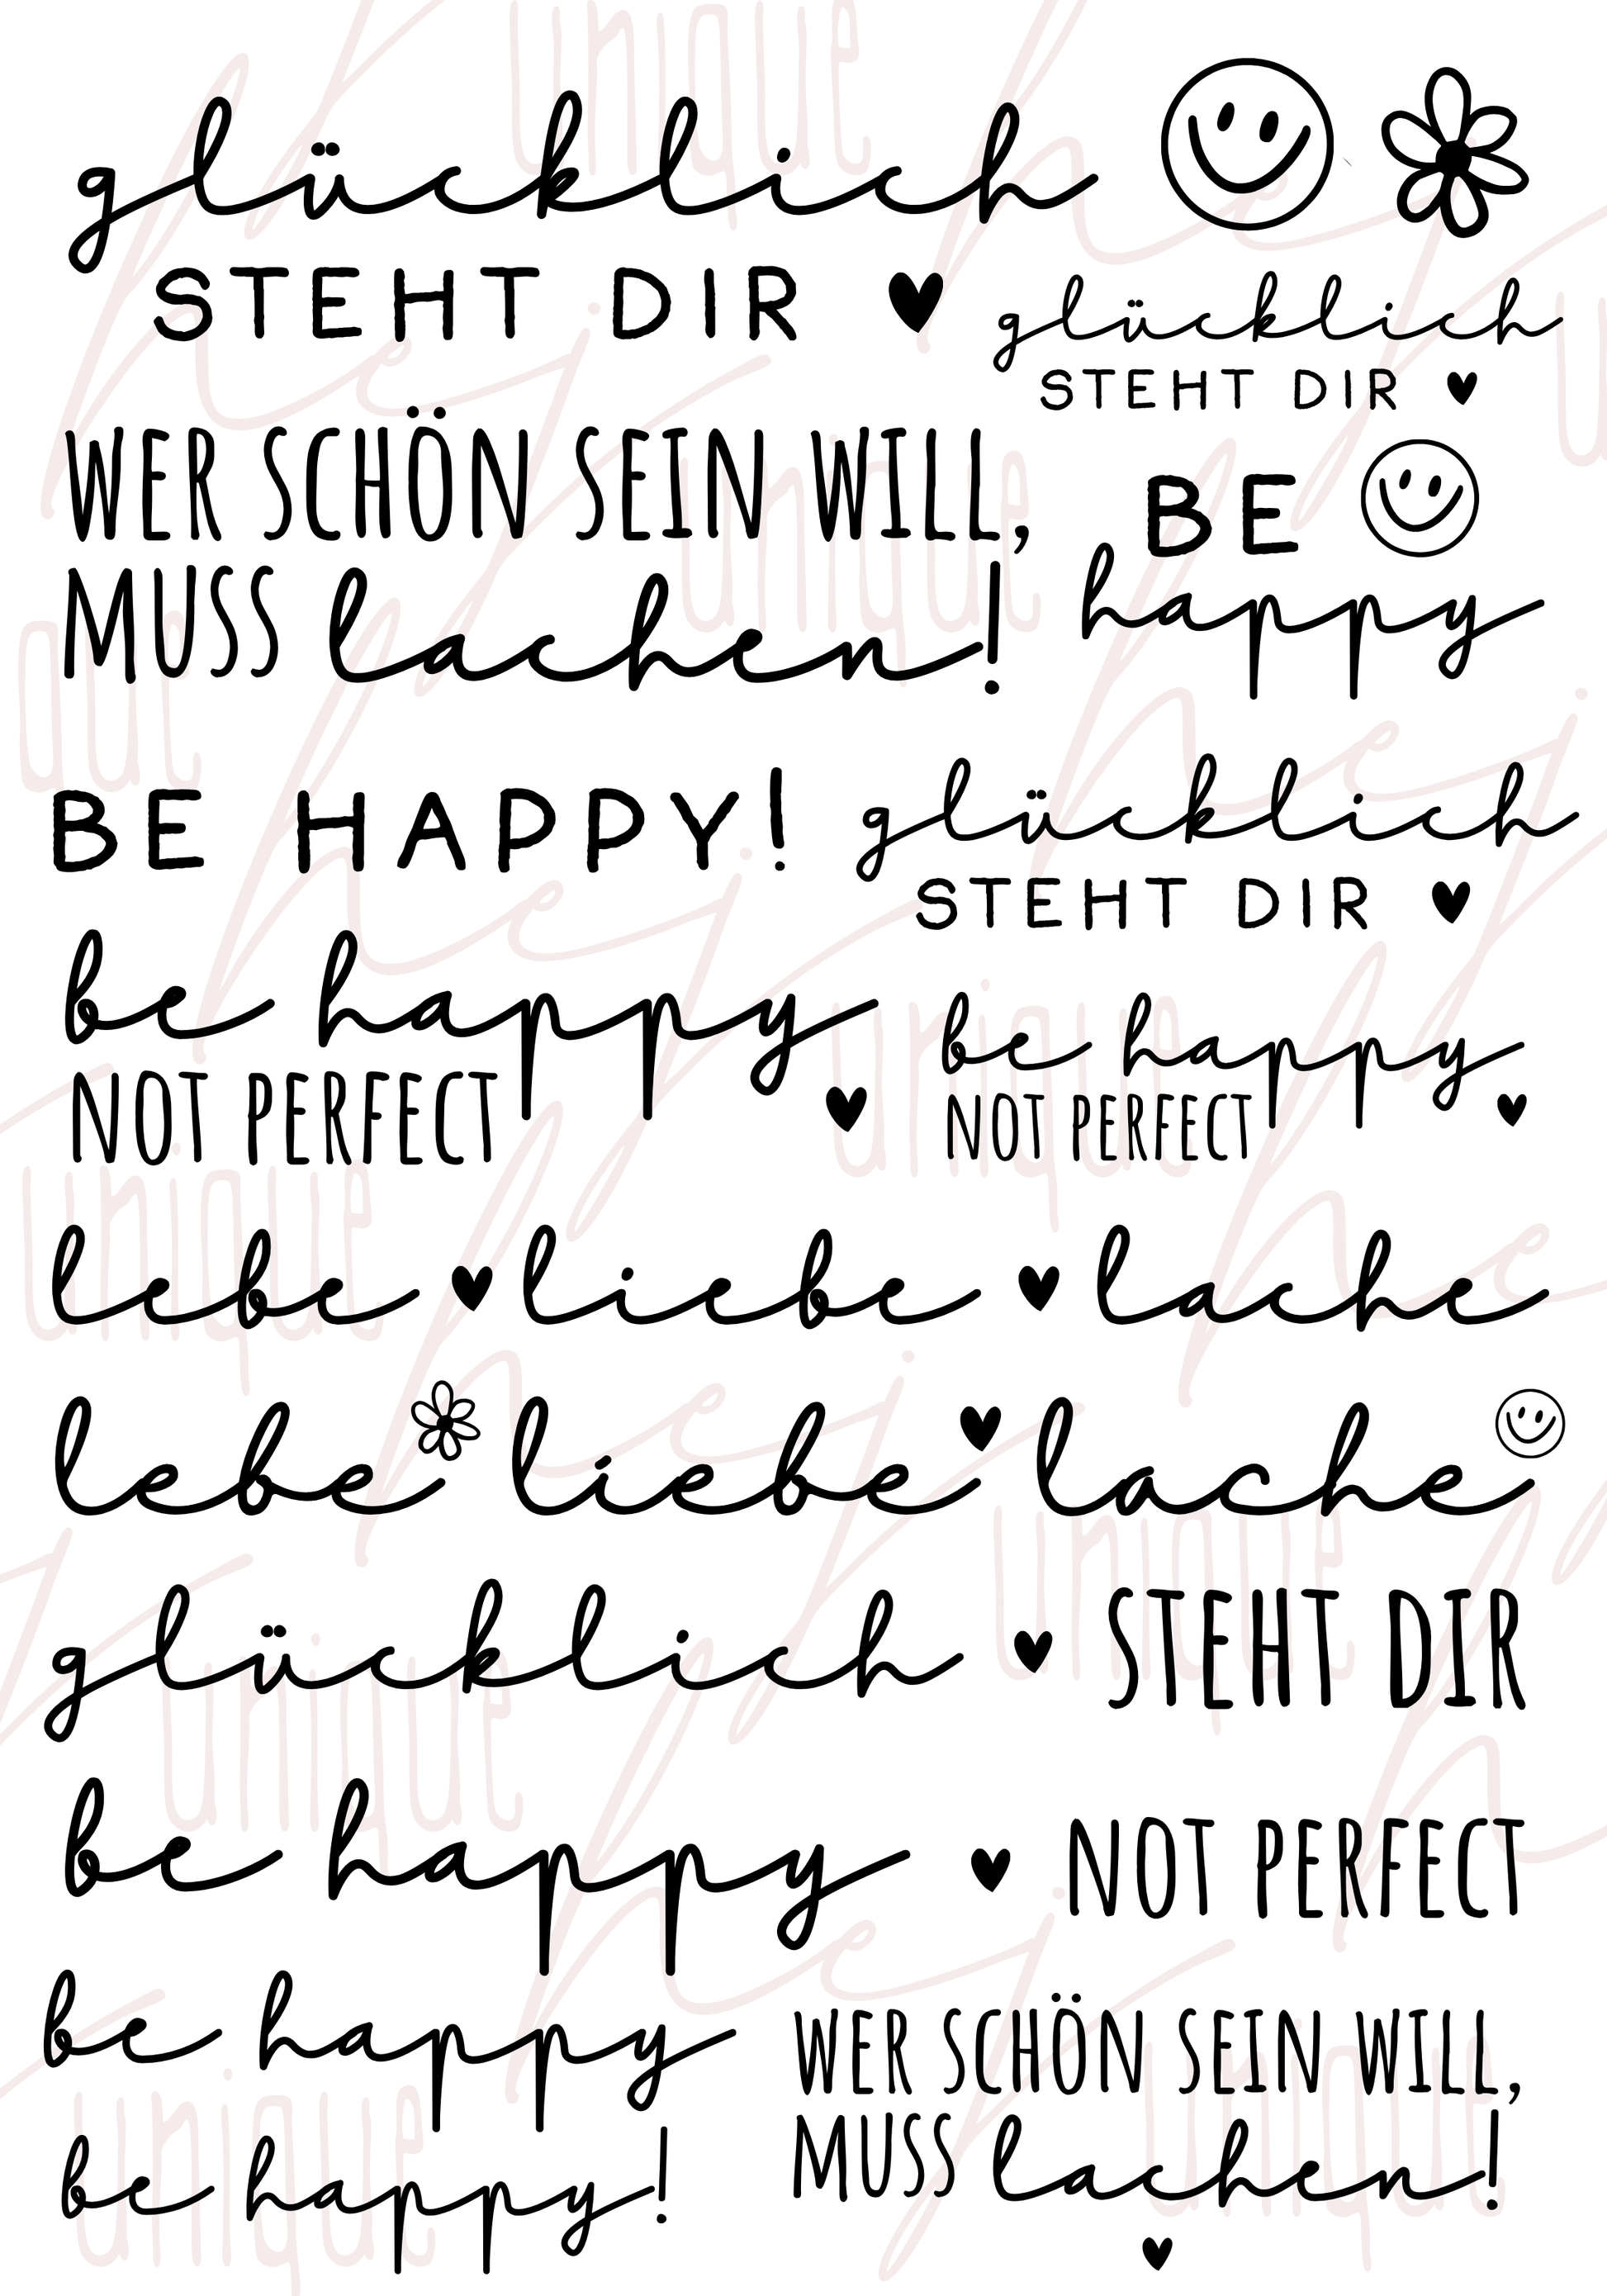 glücklich
STEHT DIR
glücklich
STEHT DIR
WER SCHÖN SEIN WILL,
MUSS lachen!
BE
happy
BE HAPPY!
glücklich
STEHT DIR
be happy
NOT PERFECT
be happy
NOT PERFECT
lebe liebe lache
lebe liebe lache
glücklich STEHT DIR
be happy NOT PERFECT
be happy
WER SCHÖN SEIN WILL,
MUSS lachen!
be happy!